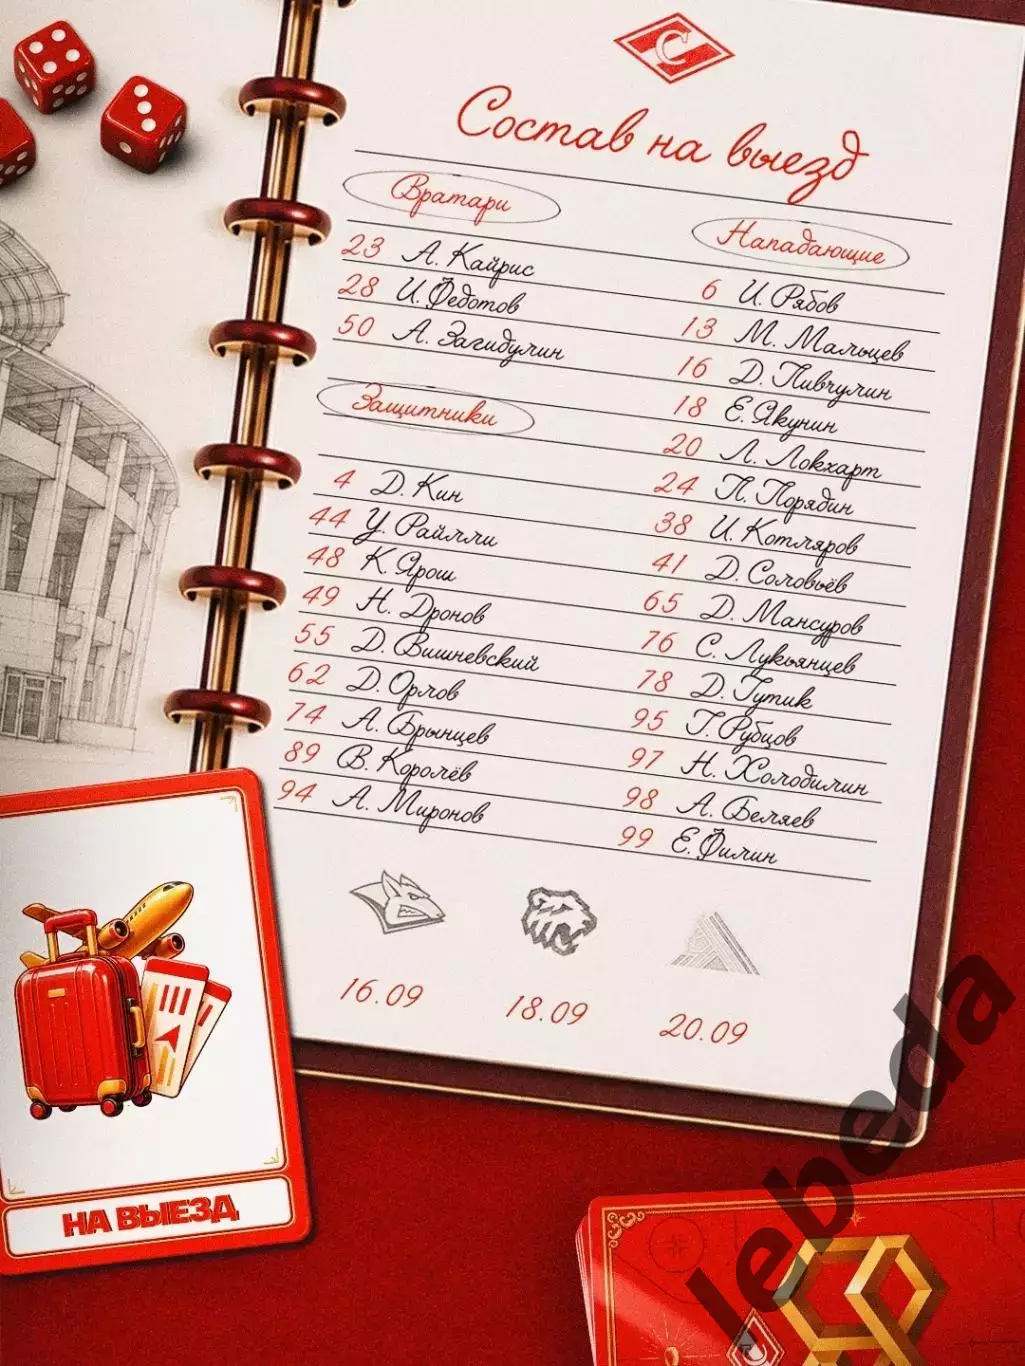 С
Состав на выезд
Вратари
23 А. Кайрис
28 И. Федотов
50 А. Загидулин
Защитники
4 Д. Кин
44 У. Райлли
48 К. Ярош
49 Н. Дронов
55 Д. Вишневский
62 Д. Орлов
74 А. Брынцев
89 В. Королёв
94 А. Миронов
Нападающие
6 И. Рябов
13 М. Мальцев
16 Д. Пивчулин
18 Е. Якунин
20 Л. Локхарт
24 П. Порядин
38 И. Котляров
41 Д. Соловьёв
65 Д. Мансуров
76 С. Лукьянцев
78 Д. Гутик
95 Г. Рубцов
97 Н. Холодилин
98 А. Беляев
99 Е. Филин
16.09
18.09
20.09
НА ВЫЕЗД
lebeda